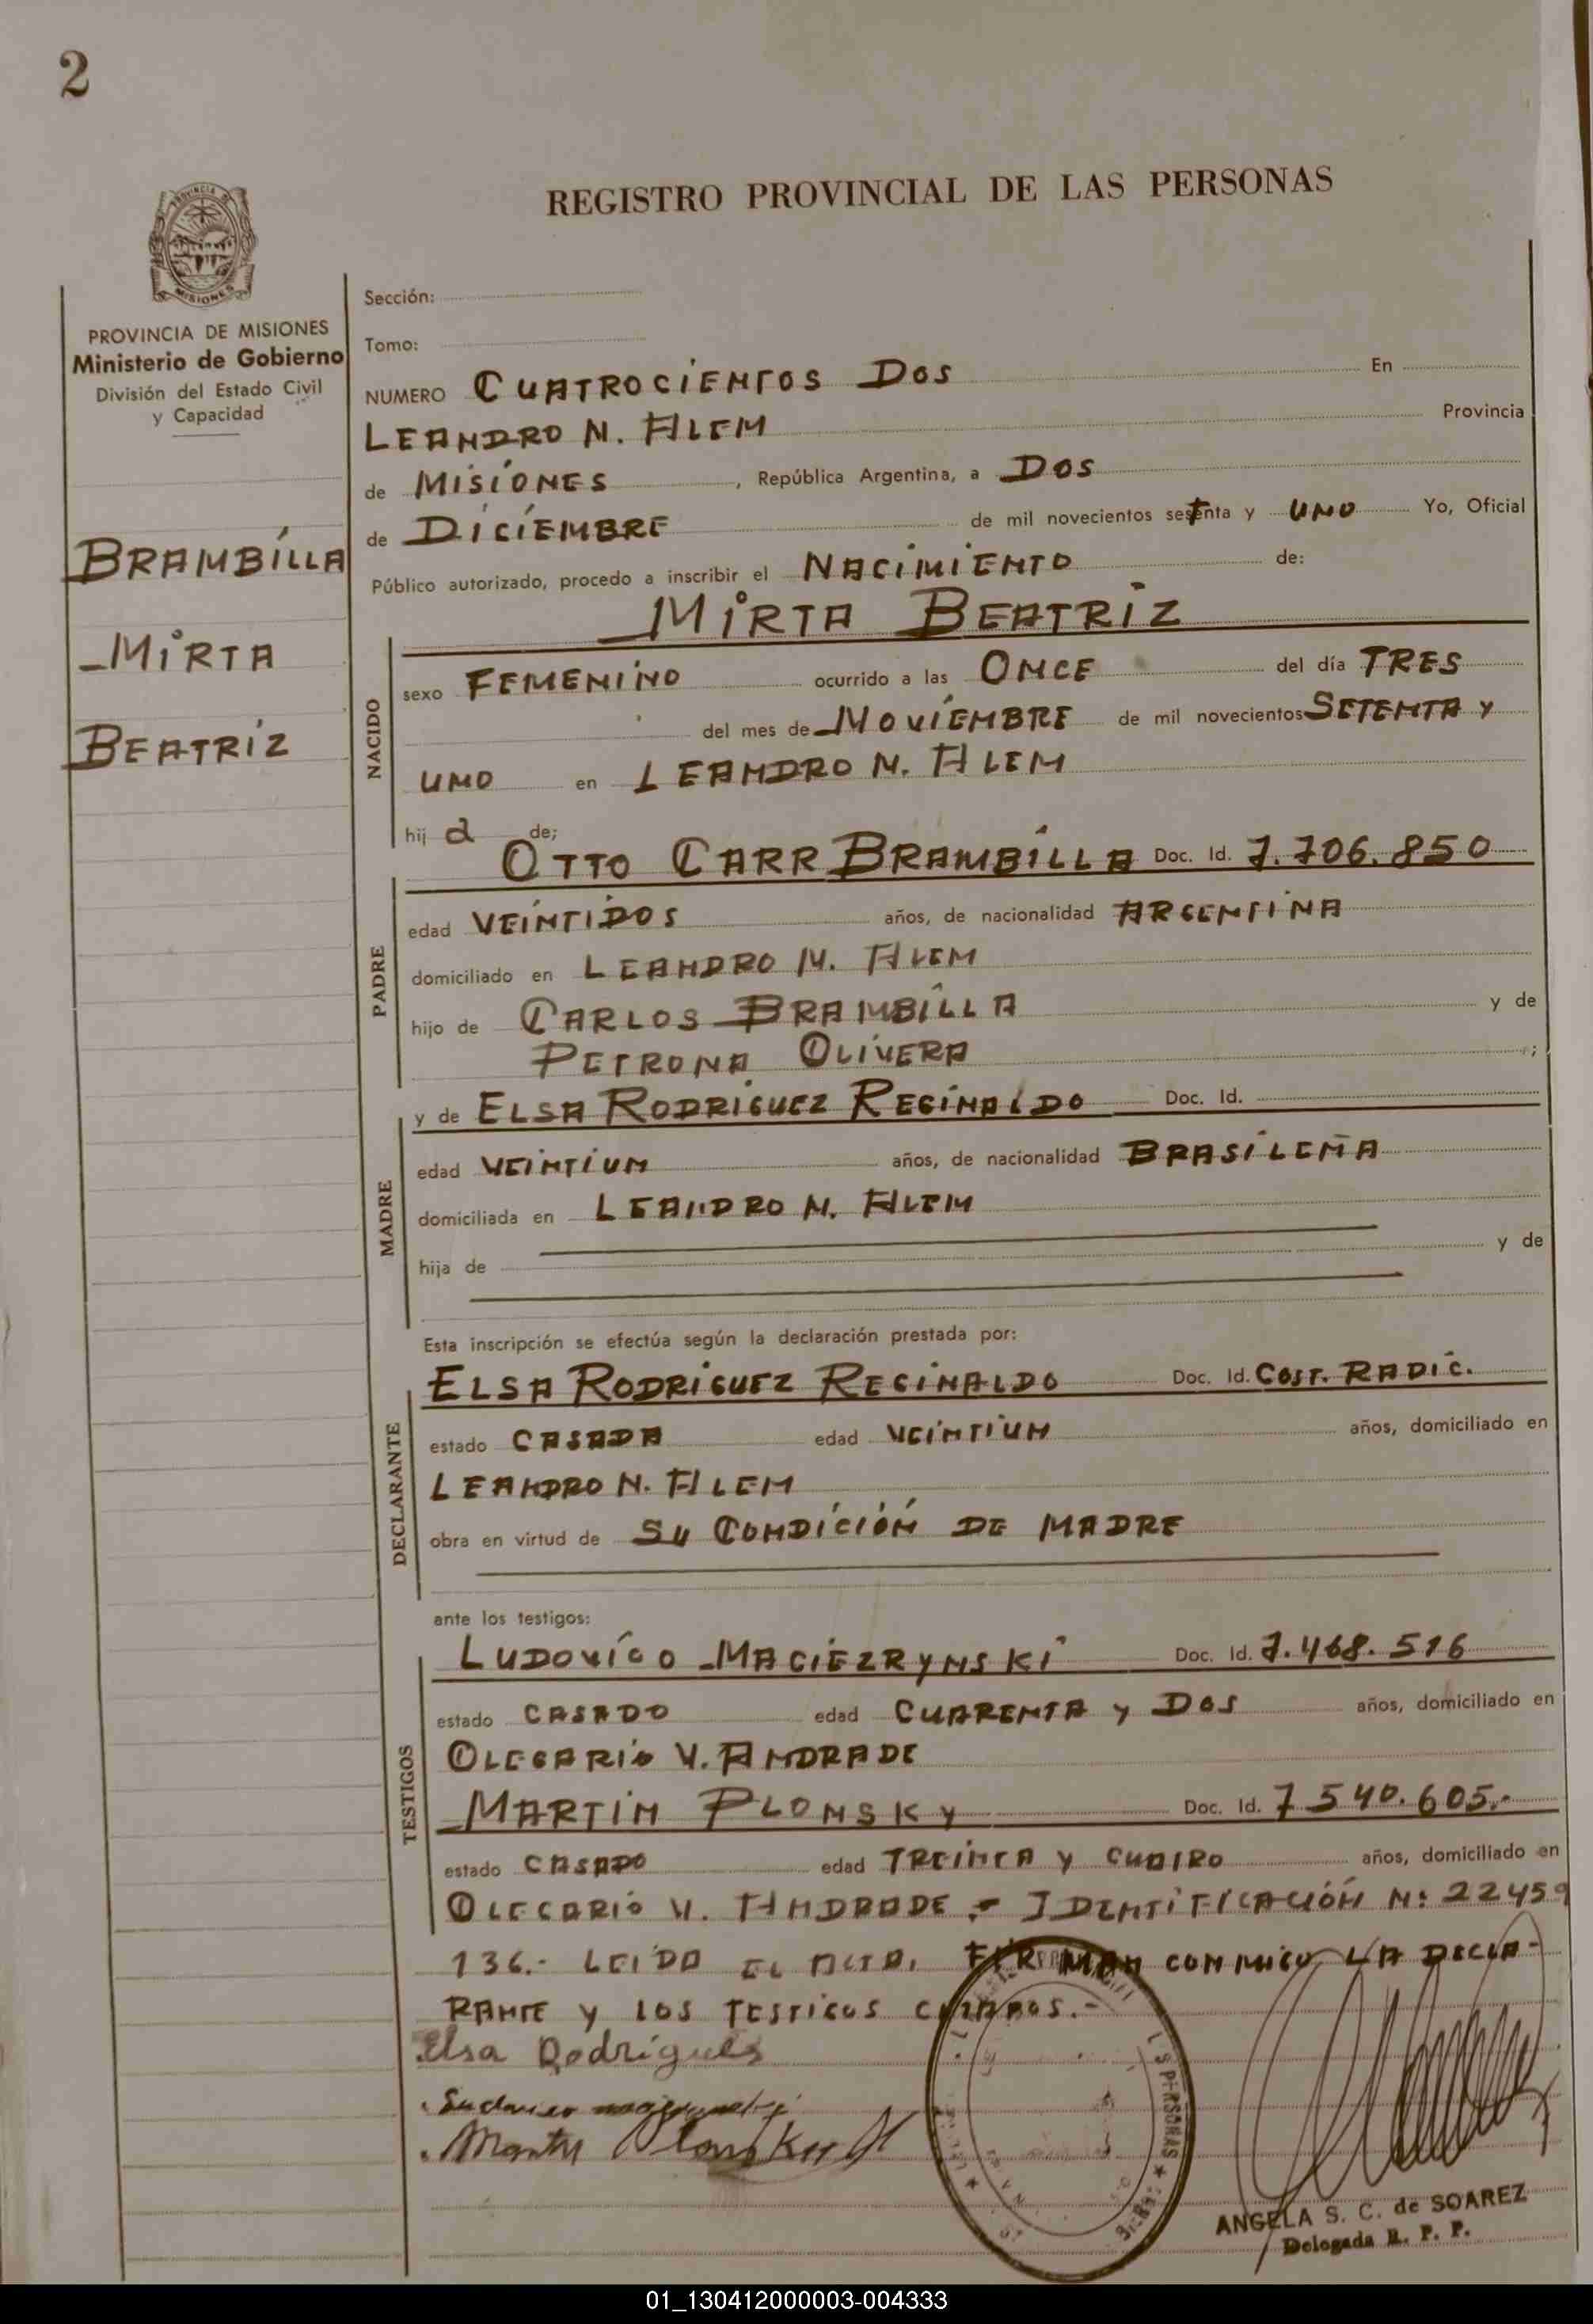 2
REGISTRO PROVINCIAL DE LAS PERSONAS
PROVINCIA
MISIONES
PROVINCIA DE MISIONES
Ministerio de Gobierno
División del Estado Civil
y Capacidad
BRAMBILLA
MIRTA
BEATRIZ
Sección:
Tomo:
NUMERO CUATROCIENTOS DOS En
LEANDRO N. ALEM Provincia
de MISIONES, República Argentina, a DOS
de DICIEMBRE de mil novecientos setenta y UNO Yo, Oficial
Público autorizado, procedo a inscribir el NACIMIENTO de:
MIRTA BEATRIZ
NACIDO
sexo FEMENINO ocurrido a las ONCE del día TRES
del mes de NOVIEMBRE de mil novecientos SETENTA Y
UNO en LEANDRO N. ALEM
hij a de;
OTTO CARR BRAMBILLA Doc. Id. 7.706.850
PADRE
edad VEINTIDOS años, de nacionalidad ARGENTINA
domiciliado en LEANDRO N. ALEM
hijo de CARLOS BRAMBILLA y de
PETRONA OLIVERA ;
y de ELSA RODRIGUEZ REGINALDO Doc. Id.
MADRE
edad VEINTIUN años, de nacionalidad BRASILEÑA
domiciliada en LEANDRO N. ALEM
hija de y de
Esta inscripción se efectúa según la declaración prestada por:
ELSA RODRIGUEZ REGINALDO Doc. Id. COST. RADIC.
DECLARANTE
estado CASADA edad VEINTIUN años, domiciliado en
LEANDRO N. ALEM
obra en virtud de SU CONDICIÓN DE MADRE
ante los testigos:
LUDOVICO MACIEZRYNSKI Doc. Id. 7.468.516
TESTIGOS
estado CASADO edad CUARENTA Y DOS años, domiciliado en
OLEGARIO V. ANDRADE
MARTIN PLONSKY Doc. Id. 7540.605.-
estado CASADO edad TREINTA Y CUATRO años, domiciliado en
OLEGARIO V. ANDRADE.- IDENTIFICACIÓN N: 22459
136.- LEIDO EL ACTA, FIRMAN CONMIGO LA DECLA-
RANTE Y LOS TESTIGOS CITADOS.-
Elsa Rodrigues
PERSONAS
ANGELA S. C. de SOAREZ
Delegada R. P. P.
01_130412000003-004333